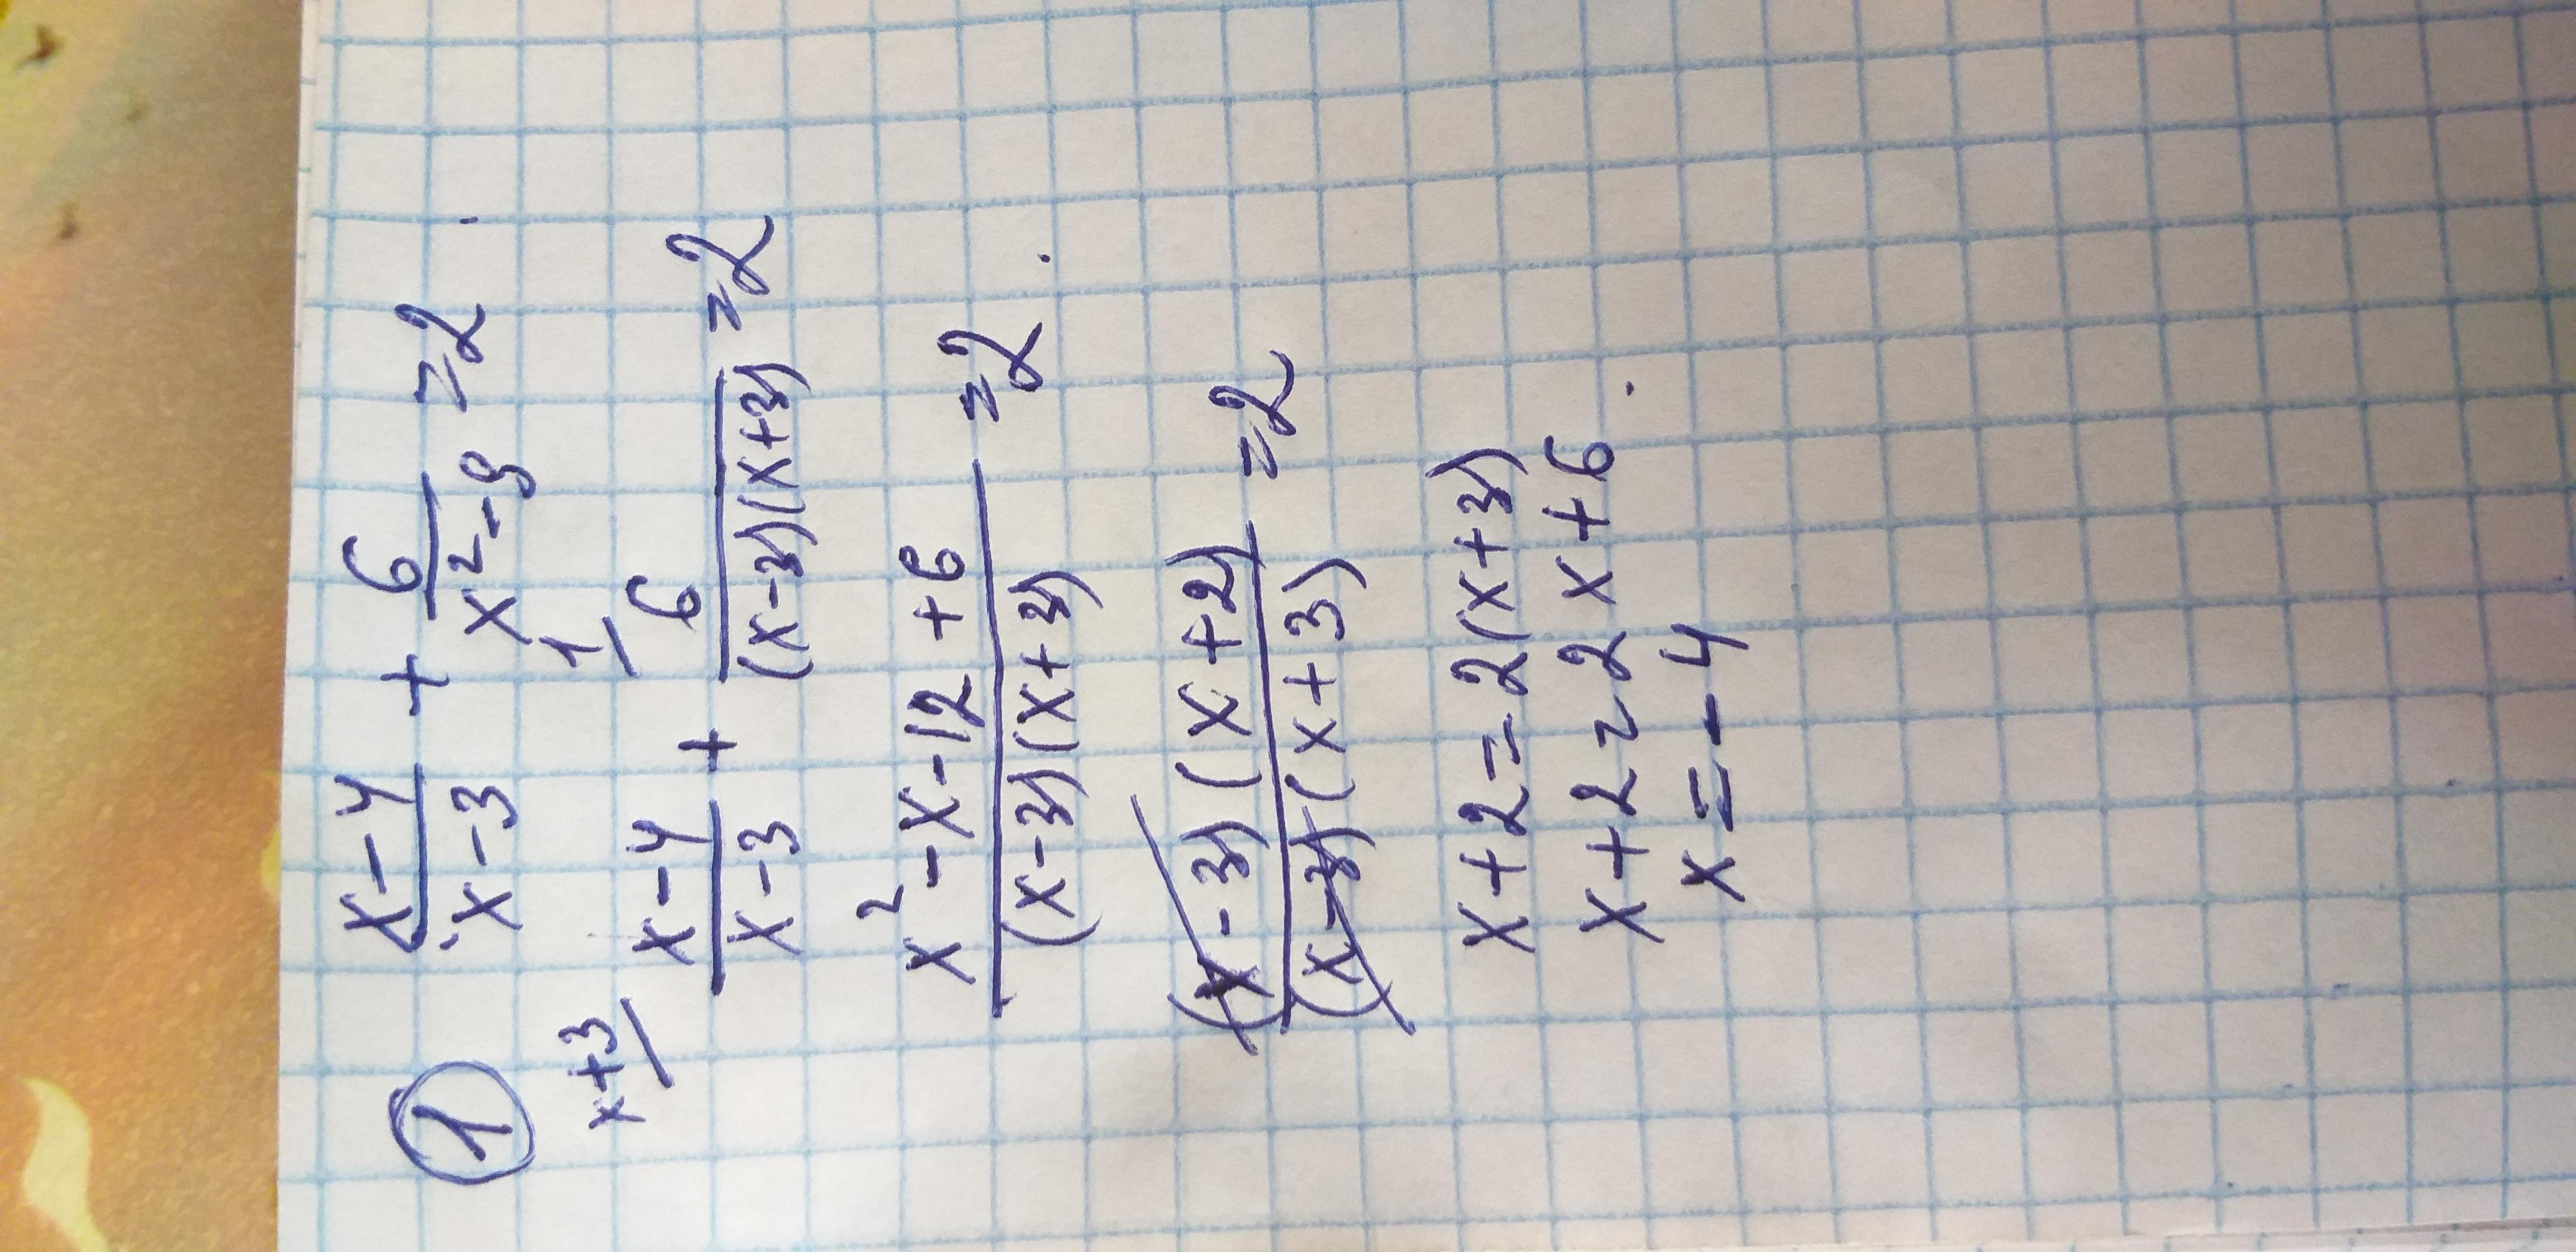 ① (x-4)/(x-3) + 6/(x²-9) = 2
x+3/ (x-4)/(x-3) + 1/ 6/((x-3)(x+3)) = 2
(x²-x-12+6)/((x-3)(x+3)) = 2
((x-3)(x+2))/((x-3)(x+3)) = 2
x+2=2(x+3)
x+2=2x+6
x=-4